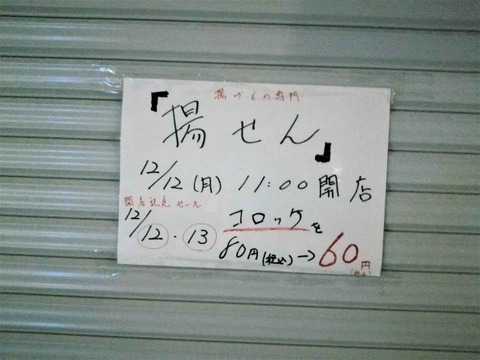 揚げもの専門
『揚せん』
12/12(月) 11:00 開店
開店記念セール
12/12・13 コロッケを
80円(税込)→60円(税込)